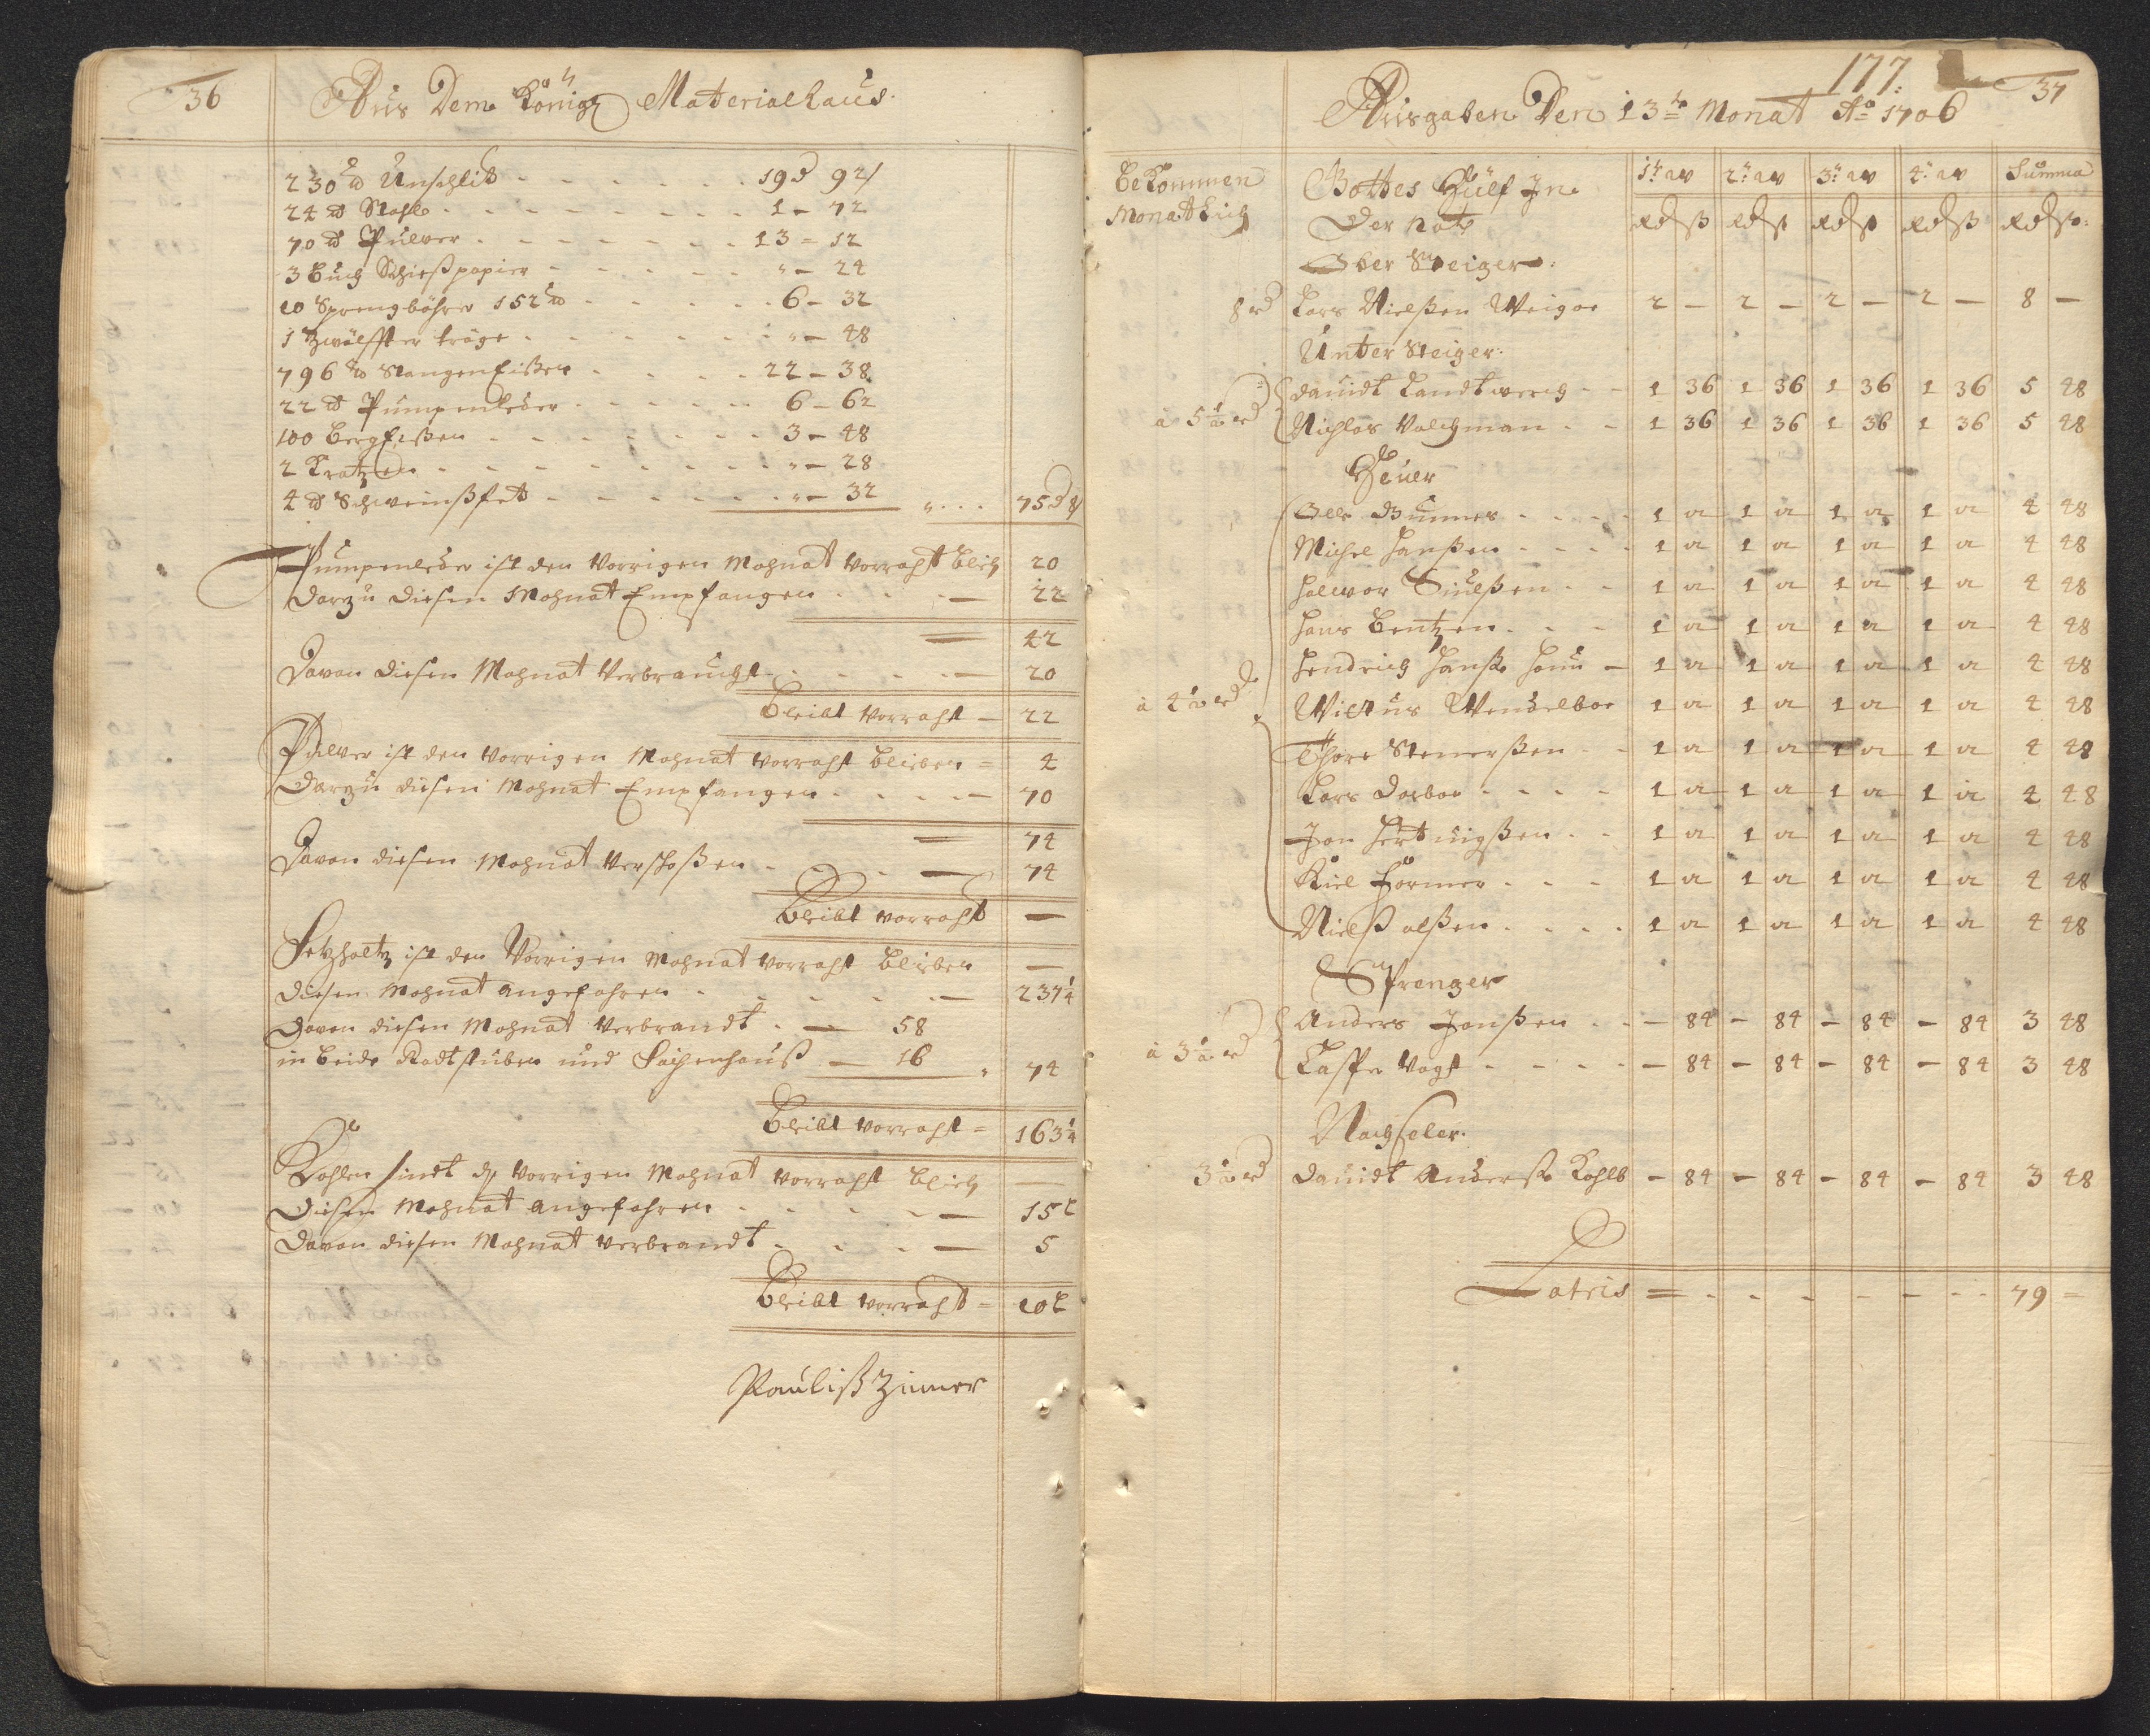 36
Aus Dem Königl Materialhaus.
230 ℔ Unschlid - - - - - 19 d 92 ß
24 ℔ Stahl - - - - - 1 - 72
70 ℔ Pulver - - - - - 13 = 12
3 Buch Schießpapier - - - - „ - 24
10 Sprengböhrer 152 ℔ - - - - 6 - 32
1 Zwölffter tröge - - - - „ - 48
796 ℔ Stangen Eißen - - - - 22 - 38
22 ℔ Pumpenleder - - - - 6 - 62
100 Bergeißen - - - - 3 - 48
2 Kratzen - - - - „ - 28
4 ℔ Schweinßfet - - - - „ - 32 „ - - - 75 d 8 ß
Pumpenleder ist den Vorrigen Mohnat Vorraht blieb 20
Darzu diesen Mohnat Empfangen - - - 22
42
Davon diesen Mohnat Verbraucht - - - 20
Bleibt Vorraht - 22
Pulver ist den Vorrigen Mohnat Vorraht blieben = 4
Darzu diesen Mohnat Empfangen - - - 70
74
Davon diesen Mohnat Verschoßen - - - 74
Bleibt Vorraht -
Setzholtz ist den Vorrigen Mohnat Vorraht blieben -
Diesen Mohnat angefahren - - - 237 1/4
Davon diesen Mohnat Verbrandt - - 58
in beide Radtstuben und Sachenhauß - 16 „ 74
Bleibt Vorraht = 163 1/4
Kohlen sindt dh Vorrigen Mohnat Vorraht blieb -
Diesen Mohnat angefahren - - - 15 L
Davon diesen Mohnat Verbrandt - - - 5
Bleibt Vorraht = 10 L
Paulisß Zimer
177. 37
Ausgaben Den 13te Monat Ao 1706
Bekommen Monatlich
Gottes Hülf In Der Noth
1te aw 2te aw 3te aw 4te aw Summa
Rdß Rdß Rdß Rdß Rdß
Ober Steiger:
8 rd Lars Nielßen Weigoe 2 - 2 - 2 - 2 - 8 -
Unter Steiger:
à 5 1/2 rd Dauidt Landtwerg - - 1 36 1 36 1 36 1 36 5 48
Nichlas Valchman - - 1 36 1 36 1 36 1 36 5 48
Heuer
à 4 1/2 rd
Olle Gunner - - - 1 12 1 12 1 12 1 12 4 48
Michel Hanßen - - - 1 12 1 12 1 12 1 12 4 48
Halwor Siuelßen - - 1 12 1 12 1 12 1 12 4 48
Hans Bentzen - - - 1 12 1 12 1 12 1 12 4 48
Hendrich Hanß Houu - 1 12 1 12 1 12 1 12 4 48
Wiktus Wendelboe 1 12 1 12 1 12 1 12 4 48
Thore Stenerßen - - 1 12 1 12 1 12 1 12 4 48
Lars Dorboe - - - - 1 12 1 12 1 12 1 12 4 48
Jon Hertuigßen - - 1 12 1 12 1 12 1 12 4 48
Kiel Former - - - 1 12 1 12 1 12 1 12 4 48
Nielß olßen - - - - 1 12 1 12 1 12 1 12 4 48
Sprenger
à 3 1/2 rd Anders Jonßen - - - 84 - 84 - 84 - 84 3 48
Casper Vogt - - - - - 84 - 84 - 84 - 84 3 48
Nachseler.
3 1/2 rd Dauidt Anderß Kohlb - 84 - 84 - 84 - 84 3 48
Latris = - - - - - - - 79 =